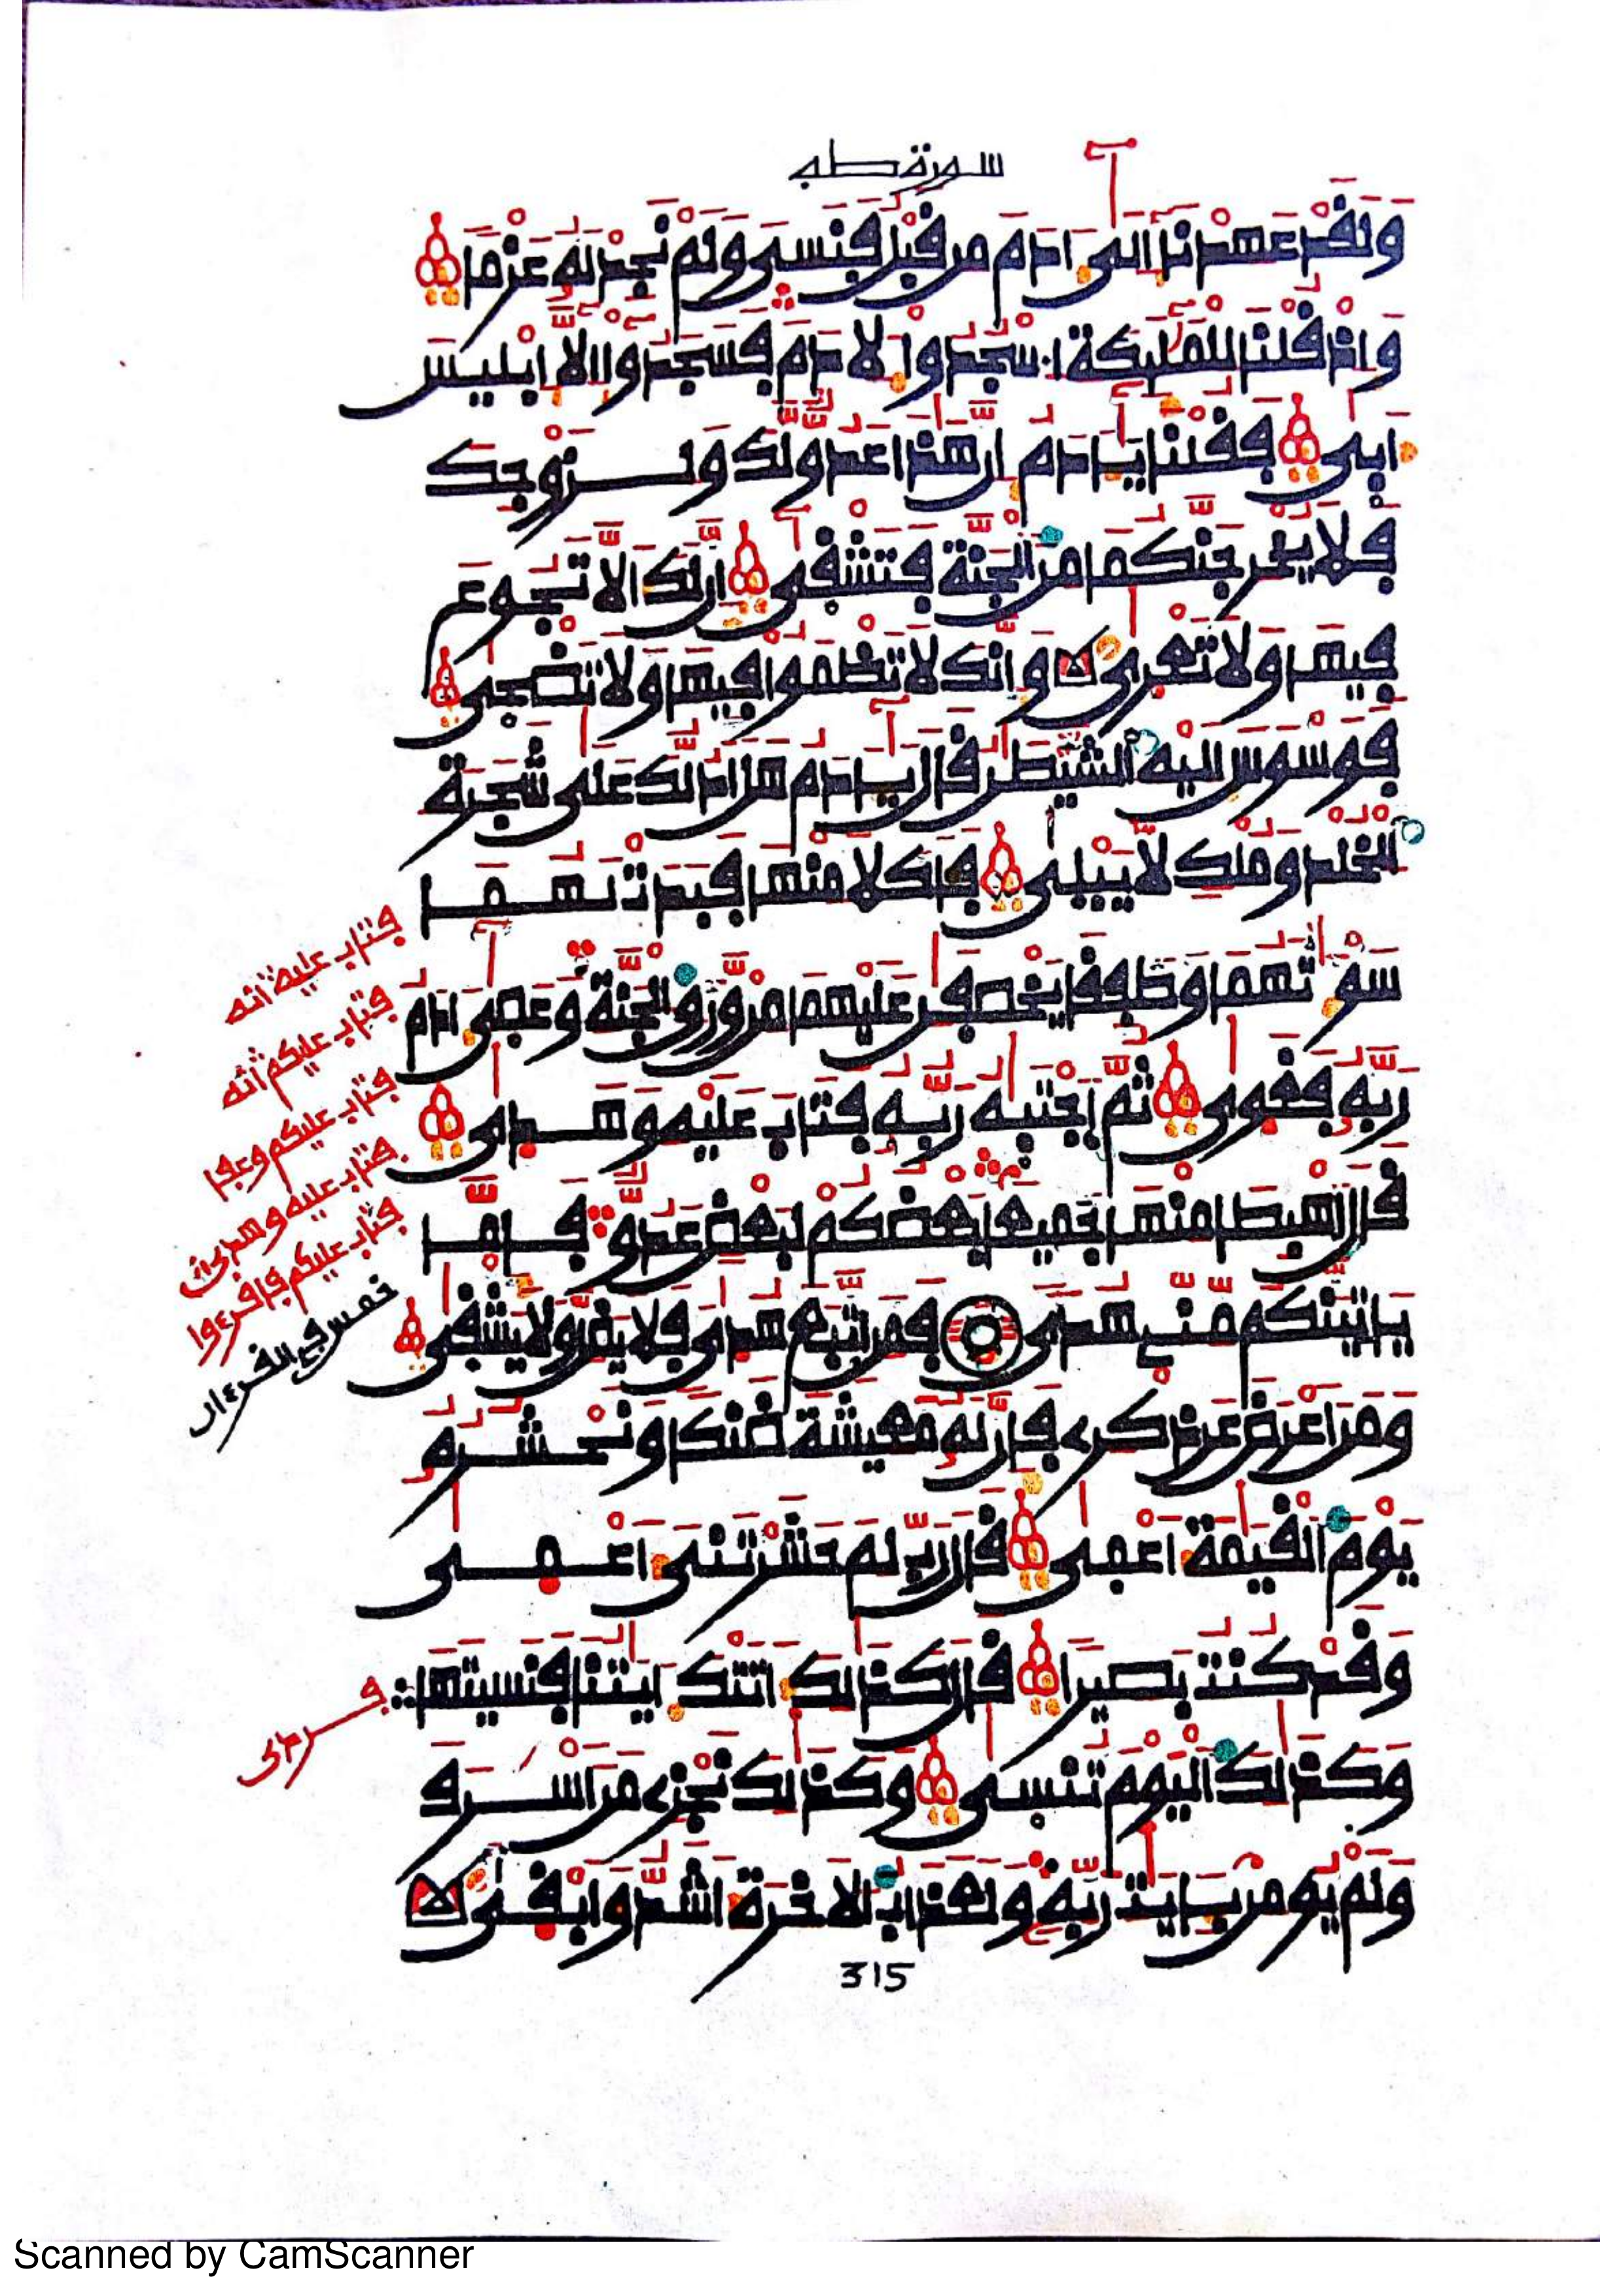 سورة طه
وَلَقَدْ عَهِدْنَا إِلَىٰ ءَادَمَ مِن قَبْلُ فَنَسِىَ وَلَمْ نَجِدْ لَهُۥ عَزْمًا
وَإِذْ قُلْنَا لِلْمَلَٰٓئِكَةِ اسْجُدُوا لِأَدَمَ فَسَجَدُوا إِلَّا إِبْلِيسَ
أَبَىٰ فَقُلْنَا يَٰٓـَٔادَمُ إِنَّ هَٰذَا عَدُوٌّ لَّكَ وَلِزَوْجِكَ
فَلَا يُخْرِجَنَّكُمَا مِنَ الْجَنَّةِ فَتَشْقَىٰ إِنَّ لَكَ أَلَّا تَجُوعَ
فِيهَا وَلَا تَعْرَىٰ وَإِنَّكَ لَا تَظْمَؤُا فِيهَا وَلَا تَضْحَىٰ
فَوَسْوَسَ إِلَيْهِ الشَّيْطَٰنُ قَالَ يَٰٓـَٔادَمُ هَلْ أَدُلُّكَ عَلَىٰ شَجَرَةِ
الْخُلْدِ وَمُلْكٍ لَّا يَبْلَىٰ فَأَكَلَا مِنْهَا فَبَدَتْ لَهُمَا
سَوْءَٰتُهُمَا وَطَفِقَا يَخْصِفَٰنِ عَلَيْهِمَا مِنْ وَّرَقِ الْجَنَّةِ وَعَصَىٰ ءَادَمُ
رَبَّهُۥ فَغَوَىٰ ثُمَّ اجْتَبَٰهُ رَبُّهُۥ فَتَابَ عَلَيْهِ وَهَدَىٰ
قَالَ اهْبِطَا مِنْهَا جَمِيعًا بَعْضُكُمْ لِبَعْضٍ عَدُوٌّ فَإِمَّا
يَأْتِيَنَّكُم مِّنِّى هُدًى فَمَنِ اتَّبَعَ هُدَاىَ فَلَا يَضِلُّ وَلَا يَشْقَىٰ
وَمَنْ أَعْرَضَ عَن ذِكْرِى فَإِنَّ لَهُۥ مَعِيشَةً ضَنكًا وَنَحْشُرُهُۥ
يَوْمَ الْقِيَٰمَةِ أَعْمَىٰ قَالَ رَبِّ لِمَ حَشَرْتَنِى أَعْمَىٰ
وَقَدْ كُنتُ بَصِيرًا قَالَ كَذَٰلِكَ أَتَتْكَ ءَايَٰتُنَا فَنَسِيتَهَا
وَكَذَٰلِكَ الْيَوْمَ تُنسَىٰ وَكَذَٰلِكَ نَجْزِى مَنْ أَسْرَفَ
وَلَمْ يُومِنْ بِـَٔايَٰتِ رَبِّهِۦ وَلَعَذَابُ الْأَخِرَةِ أَشَدُّ وَأَبْقَىٰ
فتاب عليه انه
فتاب عليكم انه
فتاب عليكم وعفا
فتاب عليه وهدى
فتاب عليكم فاقرءوا
خمس في القرءان
315
Scanned by CamScanner